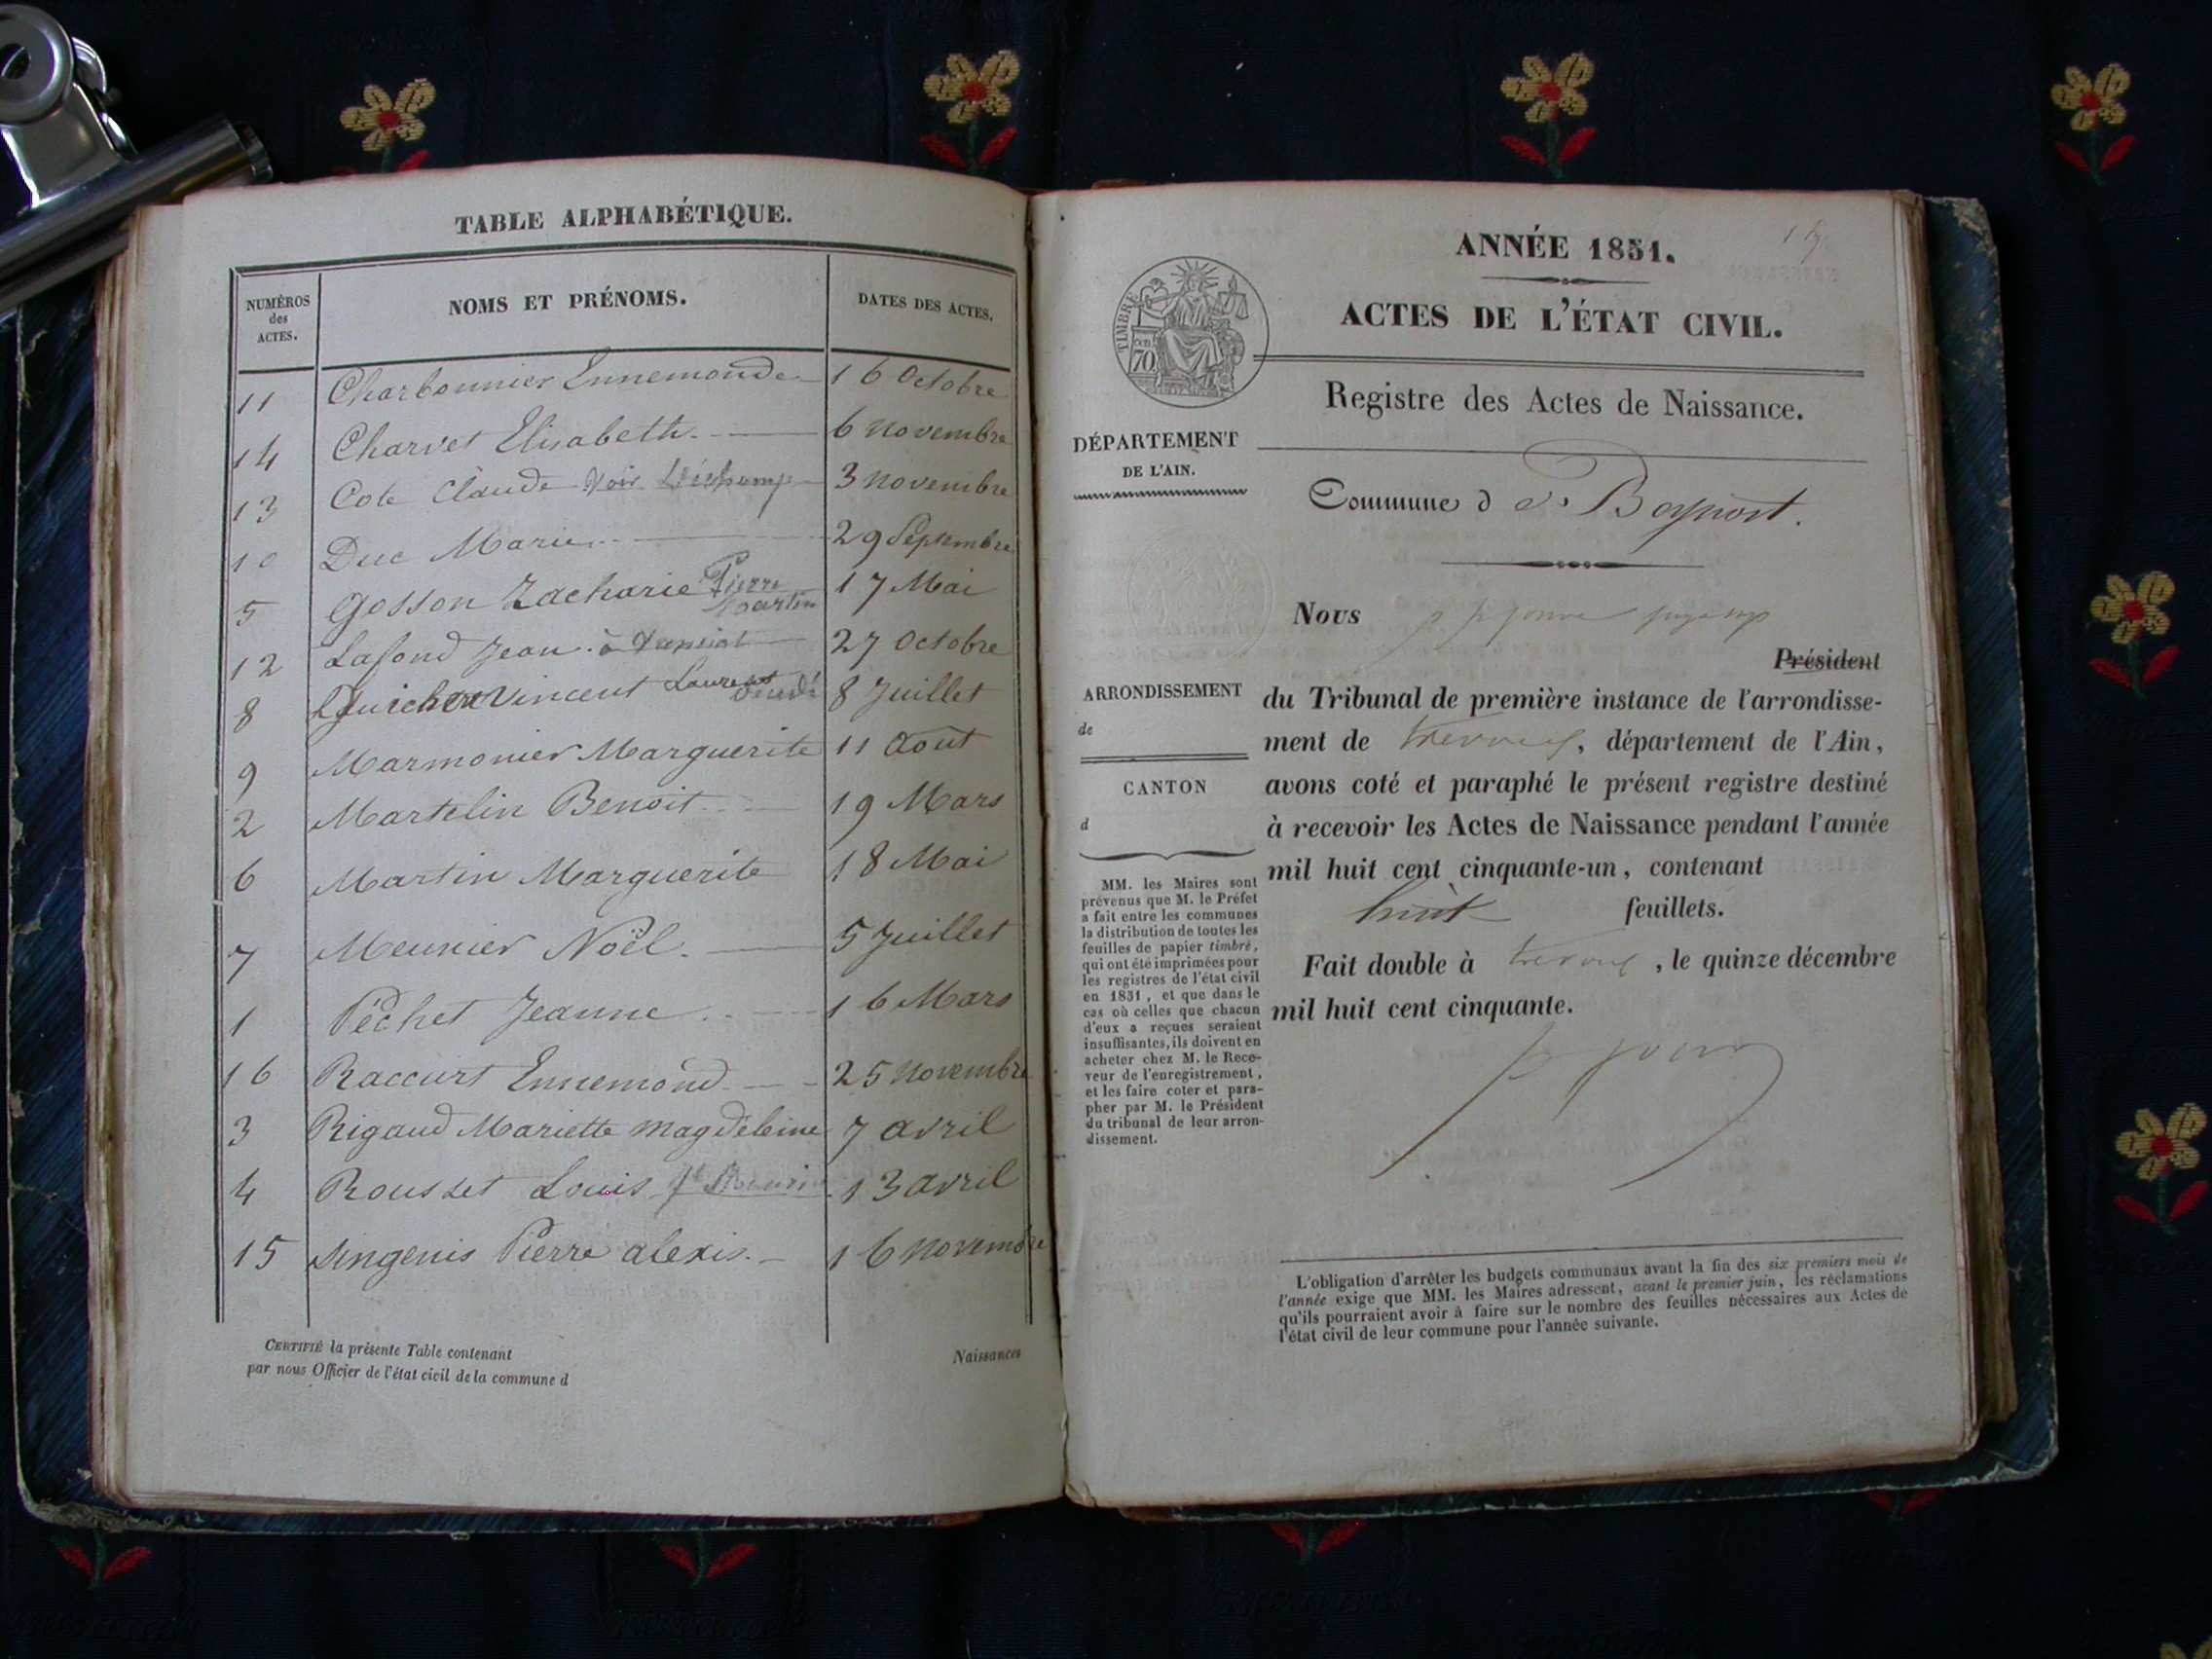 TABLE ALPHABÉTIQUE.
NUMÉROS des ACTES. NOMS ET PRÉNOMS. DATES DES ACTES.
11 Charbonnier Ennemonde 16 Octobre
14 Charvet Elisabeth 6 novembre
13 Cote Claude voir 3 novembre
10 Duc Marie 29 Septembre
5 Gosson Zacharie Pierre Martin 17 Mai
12 Lafond Jean à 27 Octobre
8 Vincent Laurent 8 Juillet
9 Marmonier Marguerite 11 aout
2 Martelin Benoit 19 Mars
6 Martin Marguerite 18 Mai
7 Meunier Noël 5 Juillet
1 Péchet Jeanne 16 Mars
16 Raccurt Ennemond 25 novembre
3 Rigaud Mariette magdeleine 7 avril
4 Rousset Louis 13 avril
15 Singenis Pierre alexis 16 novembre
CERTIFIÉ la présente Table contenant Naissances
par nous Officier de l'état civil de la commune d
ANNÉE 1851.
ACTES DE L'ÉTAT CIVIL.
TIMBRE
cen. 70
Registre des Actes de Naissance.
DÉPARTEMENT
DE L'AIN.
Commune d e Beynost.
Nous
Président
ARRONDISSEMENT
de
CANTON
d
du Tribunal de première instance de l'arrondisse-
ment de trevoux, département de l'Ain,
avons coté et paraphé le présent registre destiné
à recevoir les Actes de Naissance pendant l'année
mil huit cent cinquante-un, contenant
huit feuillets.
Fait double à trevoux, le quinze décembre
mil huit cent cinquante.
MM. les Maires sont
prévenus que M. le Préfet
a fait entre les communes
la distribution de toutes les
feuilles de papier timbré,
qui ont été imprimées pour
les registres de l'état civil
en 1851, et que dans le
cas où celles que chacun
d'eux a reçues seraient
insuffisantes, ils doivent en
acheter chez M. le Rece-
veur de l'enregistrement,
et les faire coter et para-
pher par M. le Président
du tribunal de leur arron-
dissement.
L'obligation d'arrêter les budgets communaux avant la fin des six premiers mois de
l'année exige que MM. les Maires adressent, avant le premier juin, les réclamations
qu'ils pourraient avoir à faire sur le nombre des feuilles nécessaires aux Actes de
l'état civil de leur commune pour l'année suivante.